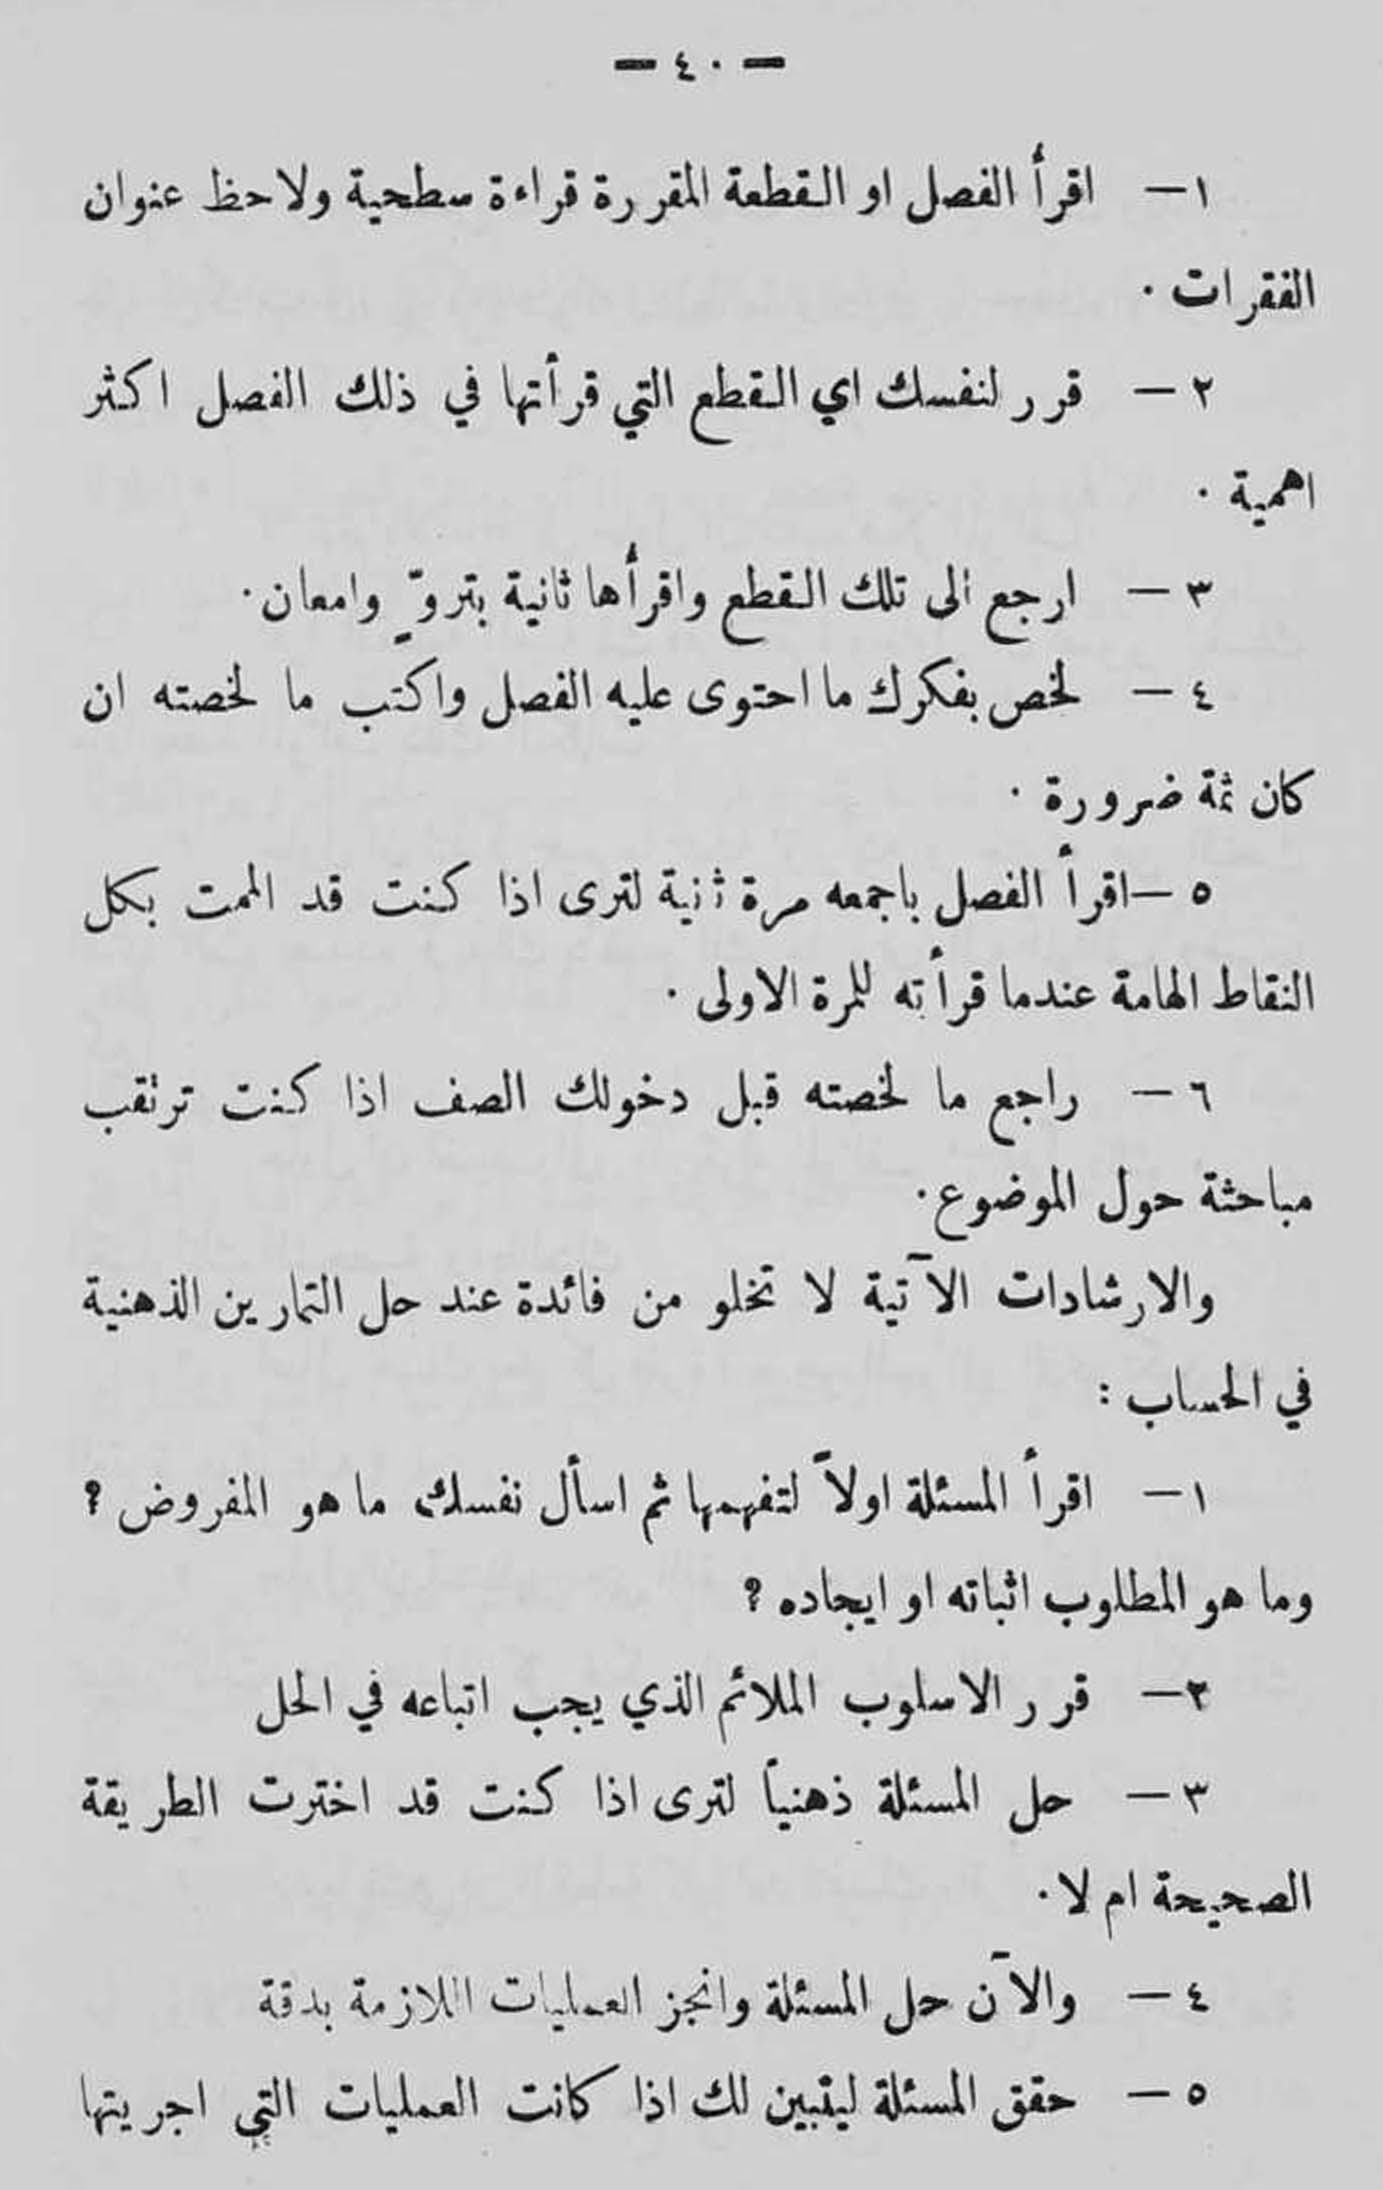 — ٤٠ —
١ — اقرأ الفصل او القطعة المقررة قراءة سطحية ولاحظ عنوان
الفقرات ٠
٢ — قرر لنفسك اي القطع التي قرأتها في ذلك الفصل اكثر
اهمية ٠
٣ — ارجع الى تلك القطع واقرأها ثانية بتروٍّ وامعان ٠
٤ — لخص بفكرك ما احتوى عليه الفصل واكتب ما لخصته ان
كان ثمة ضرورة ٠
٥ — اقرأ الفصل باجمعه مرة ثانية لترى اذا كنت قد الممت بكل
النقاط الهامة عندما قرأته للمرة الاولى ٠
٦ — راجع ما لخصته قبل دخولك الصف اذا كنت ترتقب
مباحثة حول الموضوع ٠
والارشادات الآتية لا تخلو من فائدة عند حل التمارين الذهنية
في الحساب :
١ — اقرأ المسئلة اولاً لتفهمها ثم اسأل نفسك ما هو المفروض ؟
وما هو المطلوب اثباته او ايجاده ؟
٢ — قرر الاسلوب الملائم الذي يجب اتباعه في الحل
٣ — حل المسئلة ذهنياً لترى اذا كنت قد اخترت الطريقة
الصحيحة ام لا ٠
٤ — والآن حل المسئلة وانجز العمليات اللازمة بدقة
٥ — حقق المسئلة ليتبين لك اذا كانت العمليات التي اجريتها